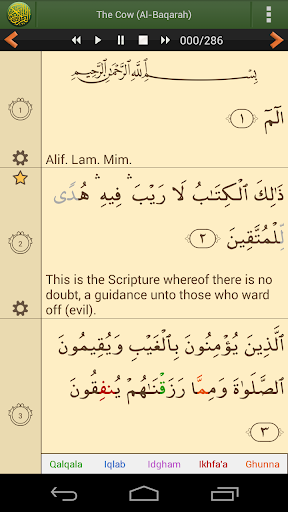 The Cow (Al-Baqarah)
000/286
بِسْمِ ٱللَّهِ ٱلرَّحْمَٰنِ ٱلرَّحِيمِ
1
الٓمٓ ١
Alif. Lam. Mim.
2
ذَٰلِكَ ٱلْكِتَابُ لَا رَيْبَ ۛ فِيهِ ۛ هُدًى
لِّلْمُتَّقِينَ ٢
This is the Scripture whereof there is no
doubt, a guidance unto those who ward
off (evil).
3
ٱلَّذِينَ يُؤْمِنُونَ بِٱلْغَيْبِ وَيُقِيمُونَ
ٱلصَّلَوٰةَ وَمِمَّا رَزَقْنَاهُمْ يُنفِقُونَ
٣
Qalqala Iqlab Idgham Ikhfa'a Ghunna